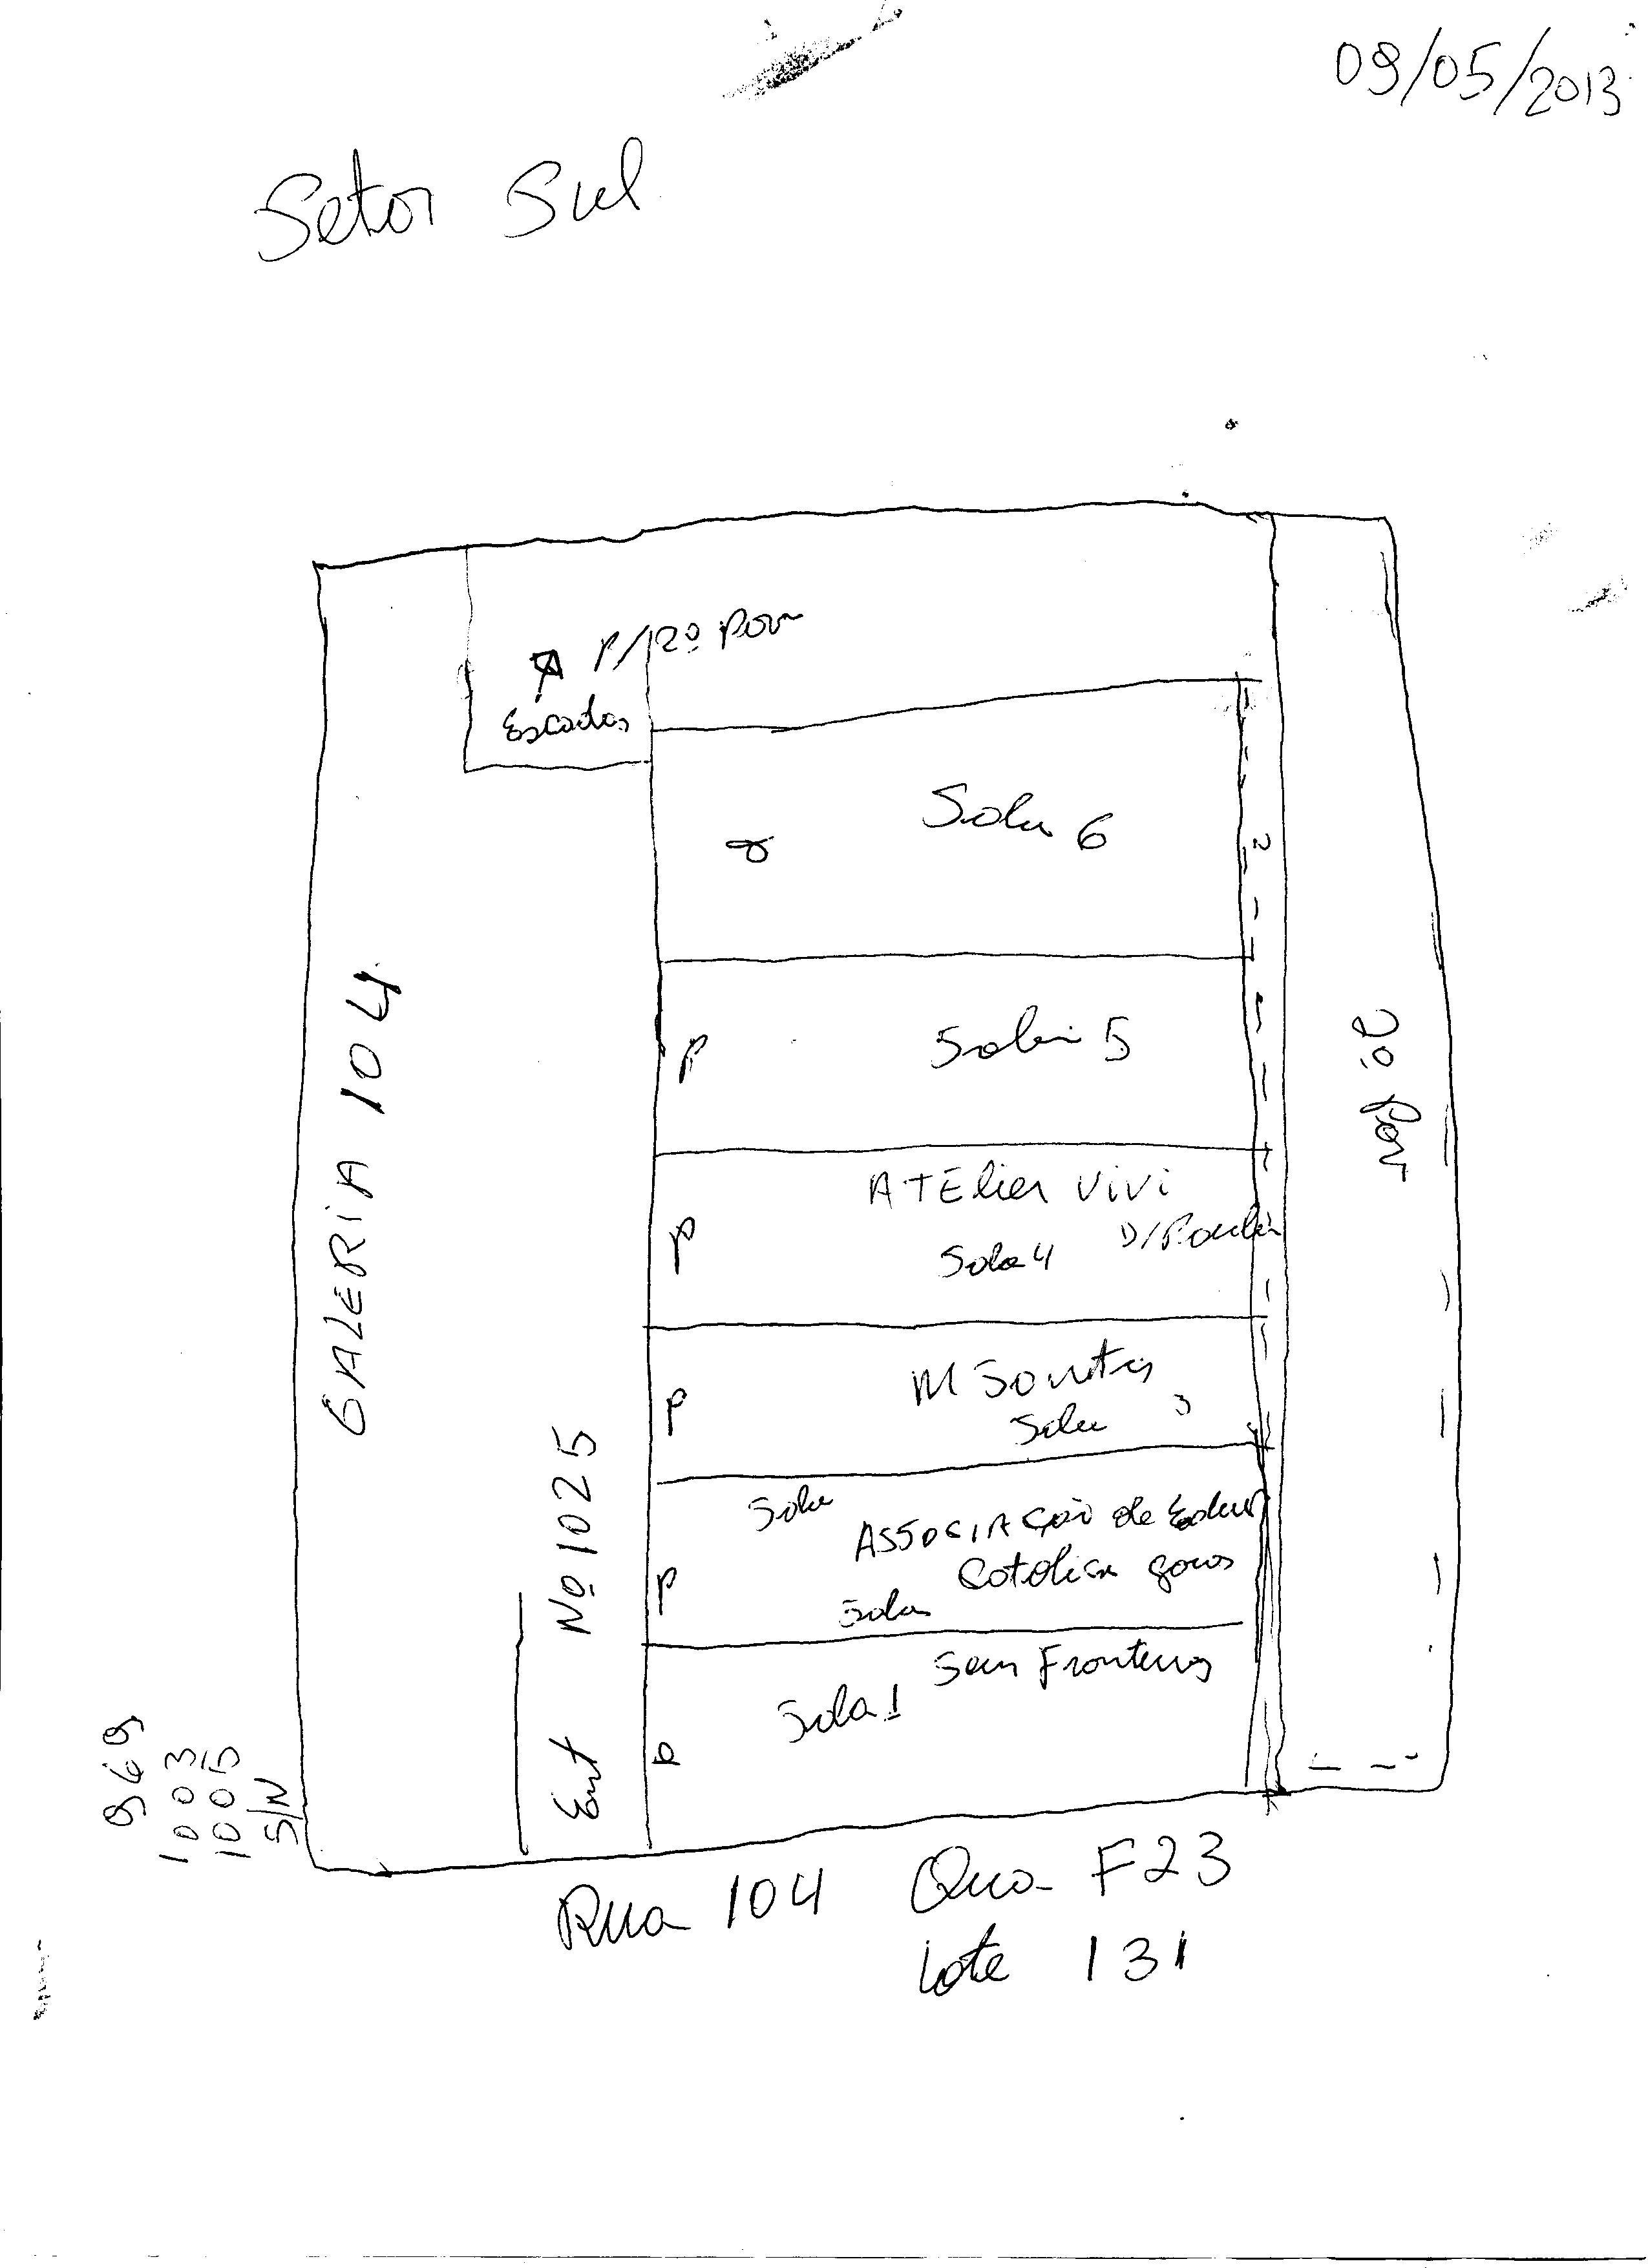 09/05/2013
Setor Sul
P/2º Pav
Escadas
Sala 6
GALERIA 104
P
Sala 5
2º Pav
ATElier ViVi
P
Sala 4
P
M Santos
Sala 3
Nº 1025
Sala
ASSOCIAÇÃO de
Catolica goias
P
Salas
Sem Fronteiras
Sala 1
Ent
P
969
1003
1005
S/N
Rua 104 Qua F23
Lote 131